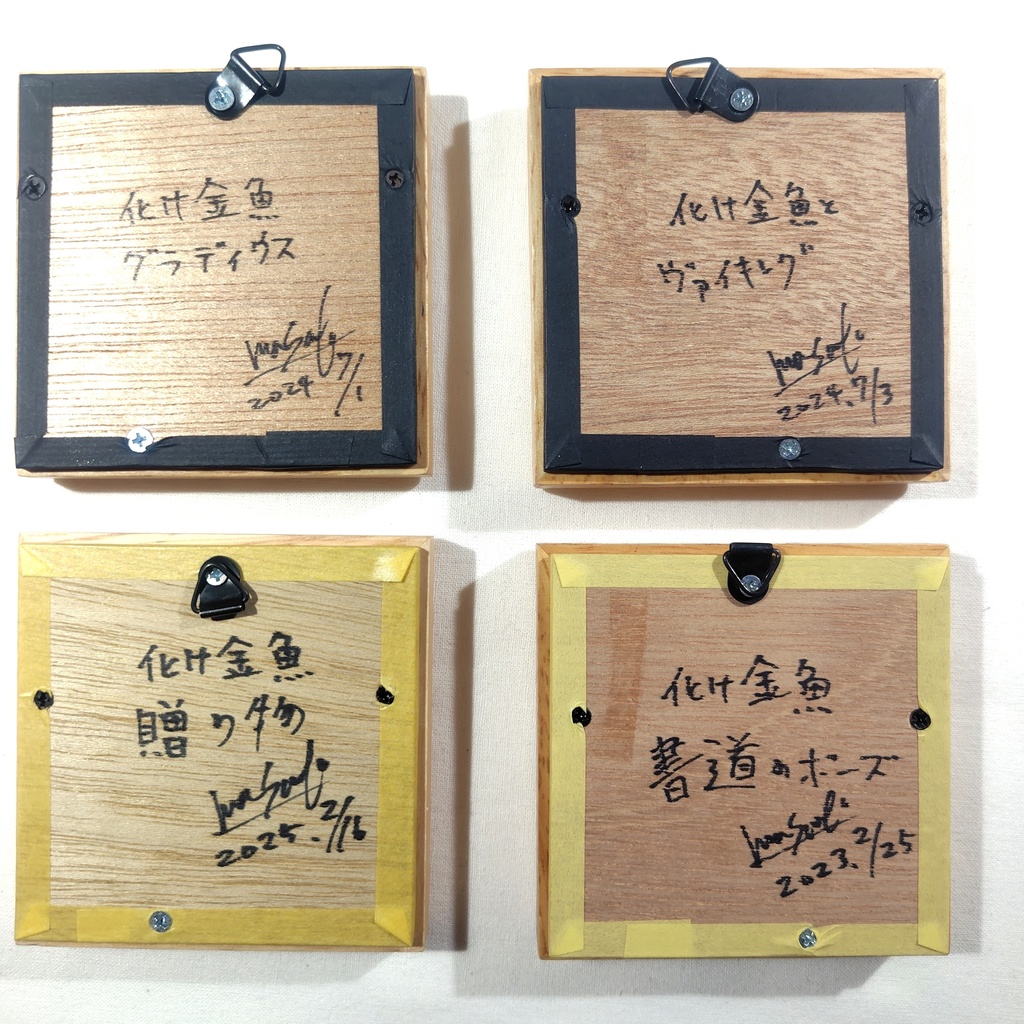 化け金魚
グラディウス
masaki
2024 7/1
化け金魚と
ヴァイキング
masaki
2024.7/3
化け金魚
贈り物
masaki
2025.2/16
化け金魚
書道のポーズ
masaki
2023.2/25